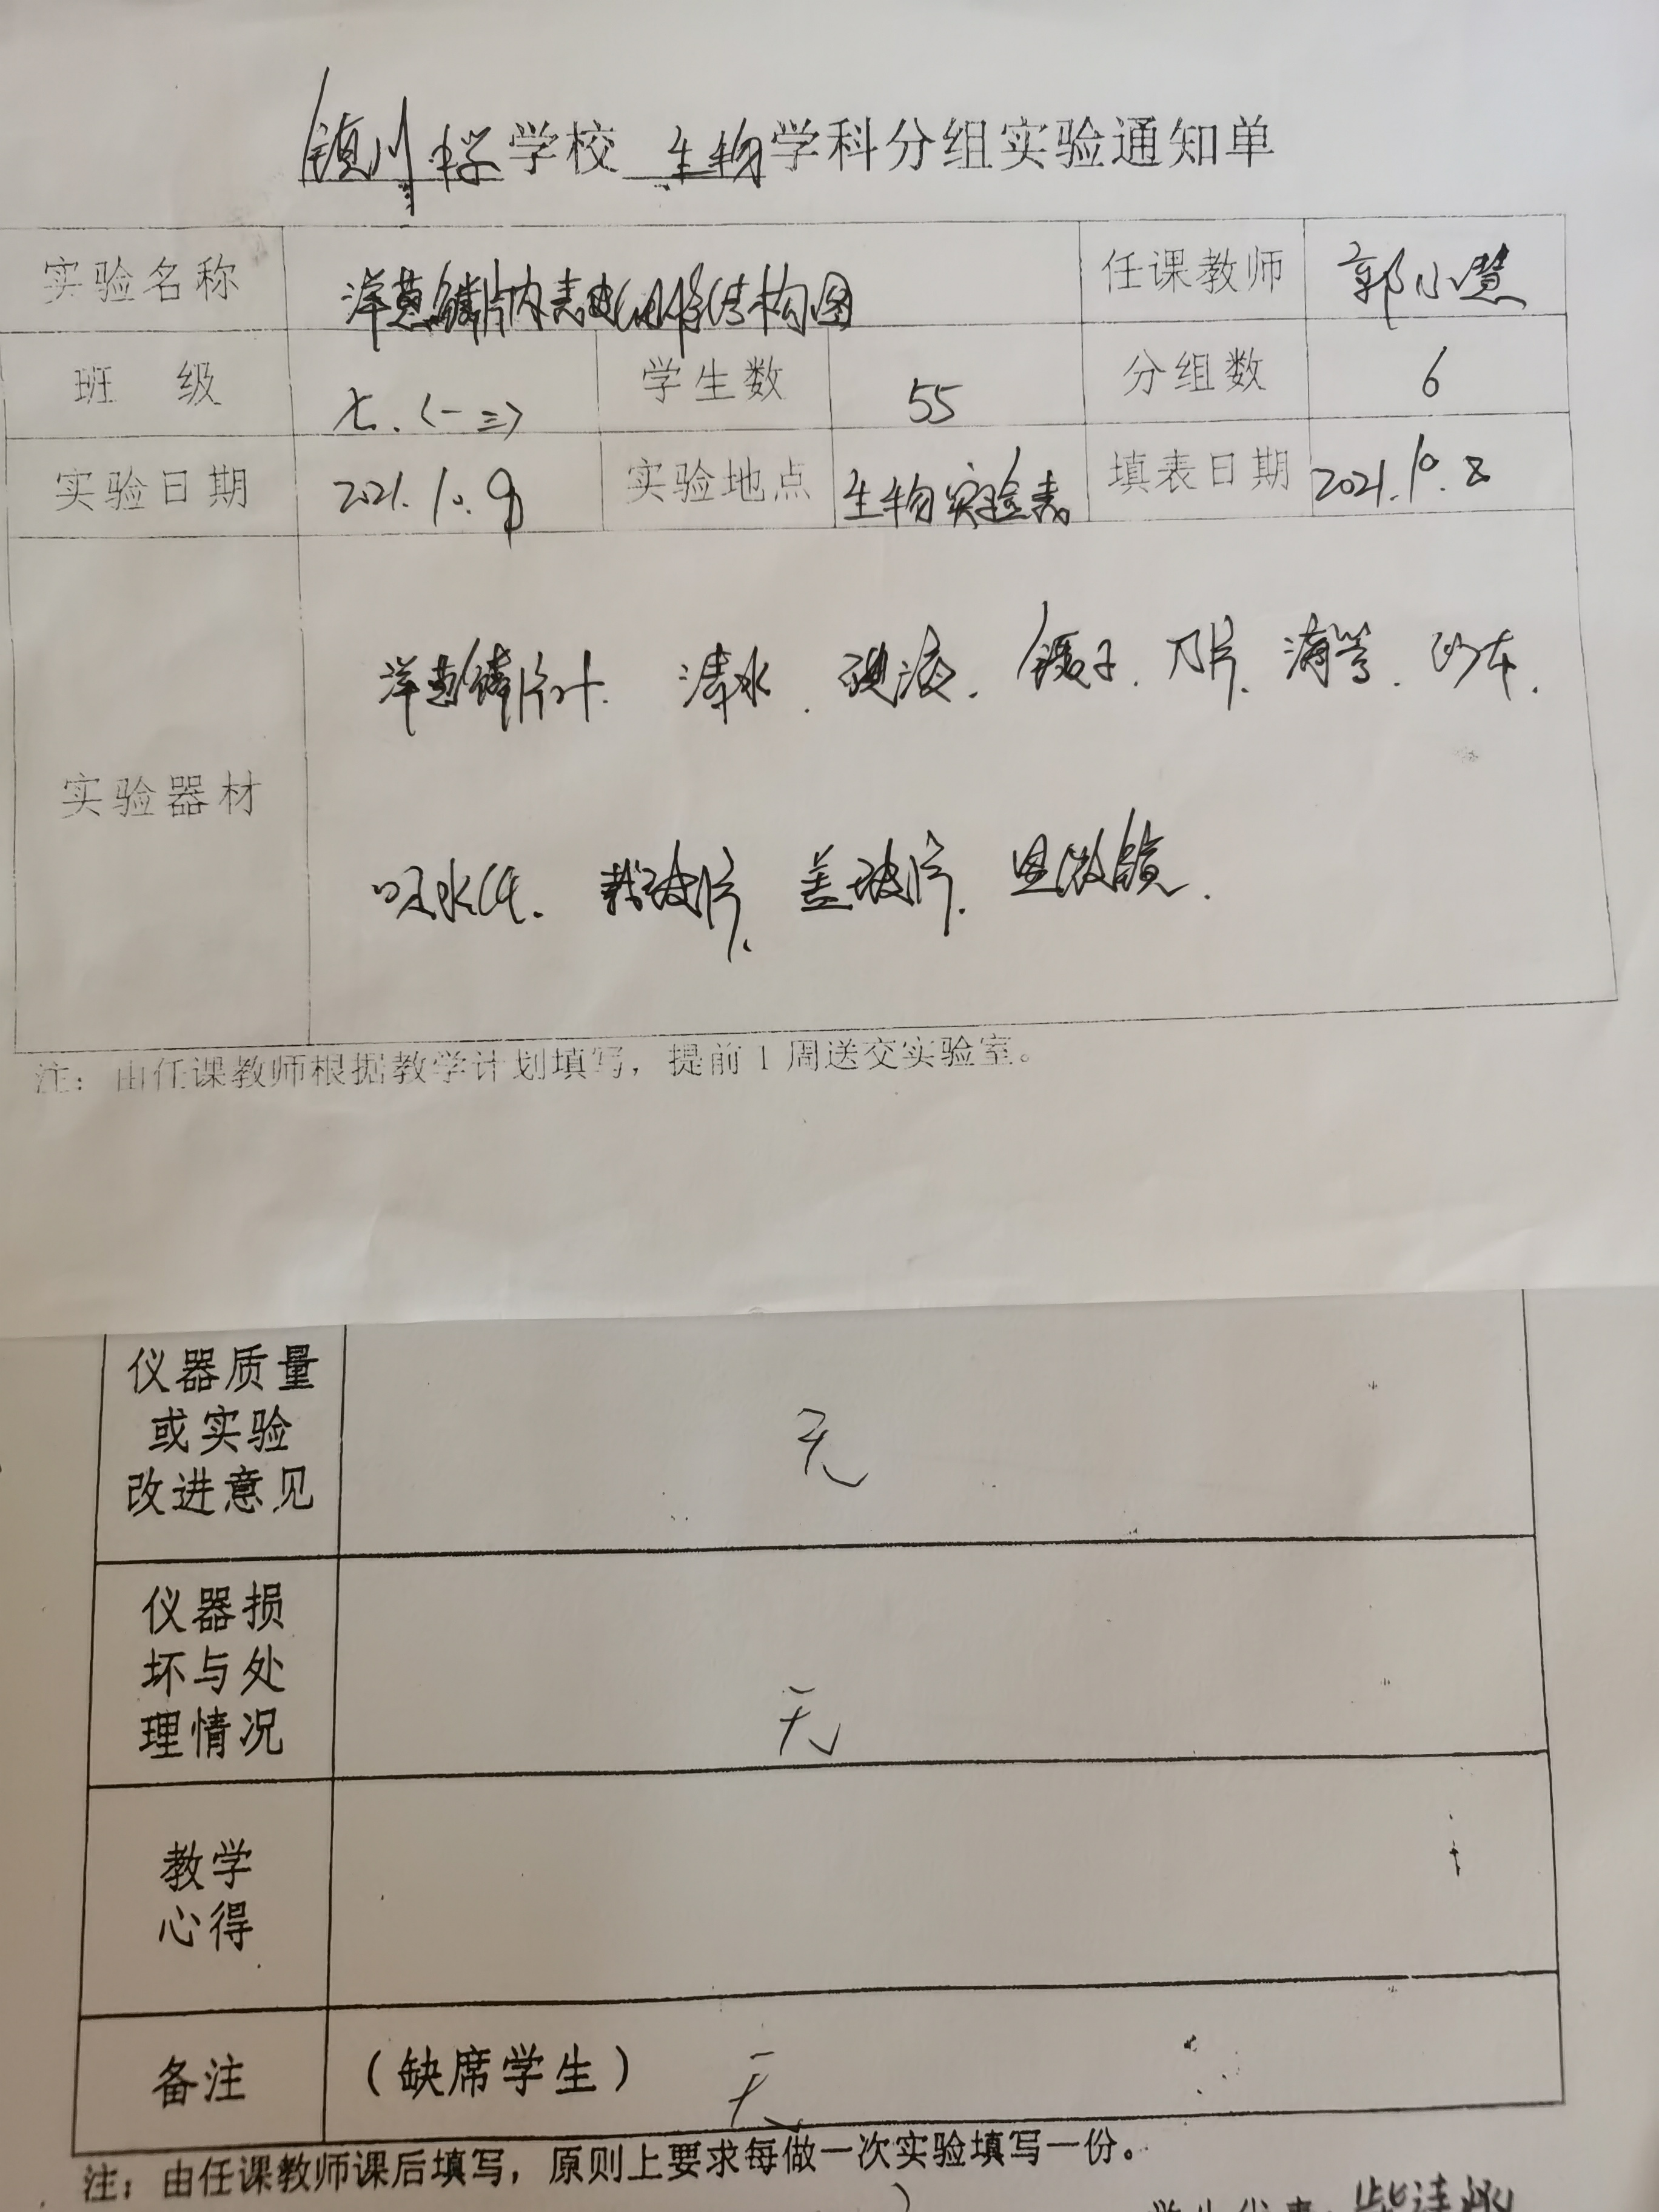 镇川中学学校 生物学科分组实验通知单
实验名称 洋葱鳞片内表皮细胞结构图 任课教师 郭小慧
班 级 七.(一三) 学生数 55 分组数 6
实验日期 2021.10.9 实验地点 生物实验室 填表日期 2021.10.8
实验器材
洋葱鳞片叶. 清水. 碘液. 镊子. 刀片. 滴管. 纱布.
吸水纸. 载玻片. 盖玻片. 显微镜.
注：由任课教师根据教学计划填写，提前1周送交实验室。
仪器质量
或实验
改进意见
无
仪器损
坏与处
理情况
无
教学
心得
备注 （缺席学生） 无
注：由任课教师课后填写，原则上要求每做一次实验填写一份。